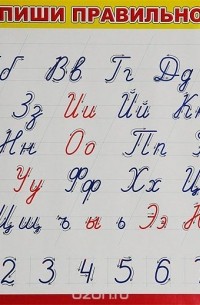 ПИШИ ПРАВИЛЬНО
б Вв Гг Дд
Зз Ии Йй К
Нн Оо Пп
Уу Фф Хх Ц
Щщ ъ ы ь Ээ
2 3 4 5 6 7
ozon.ru